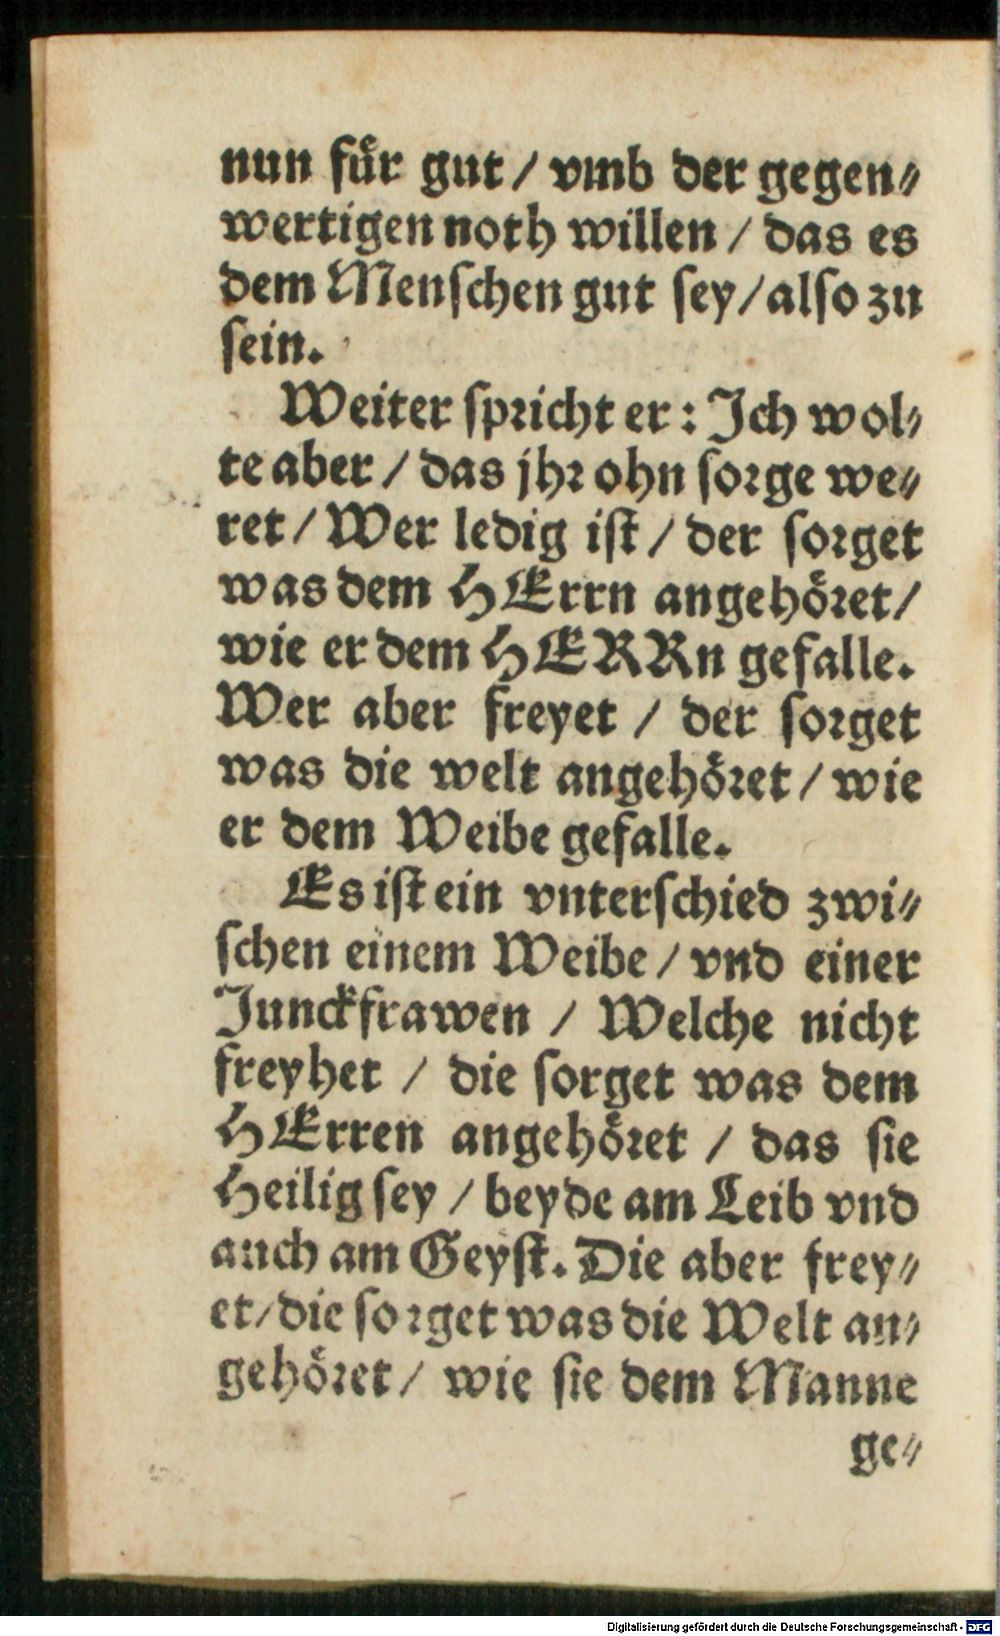 nun fuͤr gut / vmb der gegen⸗
wertigen noth willen / das es
dem Menſchen gut ſey / alſo zu
ſein.
Weiter ſpricht er: Ich wol⸗
te aber / das jhr ohn ſorge we⸗
ret / Wer ledig iſt / der ſorget
was dem HErrn angehoͤret /
wie er dem HERRn gefalle.
Wer aber freyet / der ſorget
was die welt angehoͤret / wie
er dem Weibe gefalle.
Es iſt ein vnterſchied zwi⸗
ſchen einem Weibe / vnd einer
Junckfrawen / Welche nicht
freyhet / die ſorget was dem
HErren angehoͤret / das ſie
Heilig ſey / beyde am Leib vnd
auch am Geyſt. Die aber frey⸗
et / die ſorget was die Welt an⸗
gehoͤret / wie ſie dem Manne
ge⸗
Digitalisierung gefördert durch die Deutsche Forschungsgemeinschaft - DFG